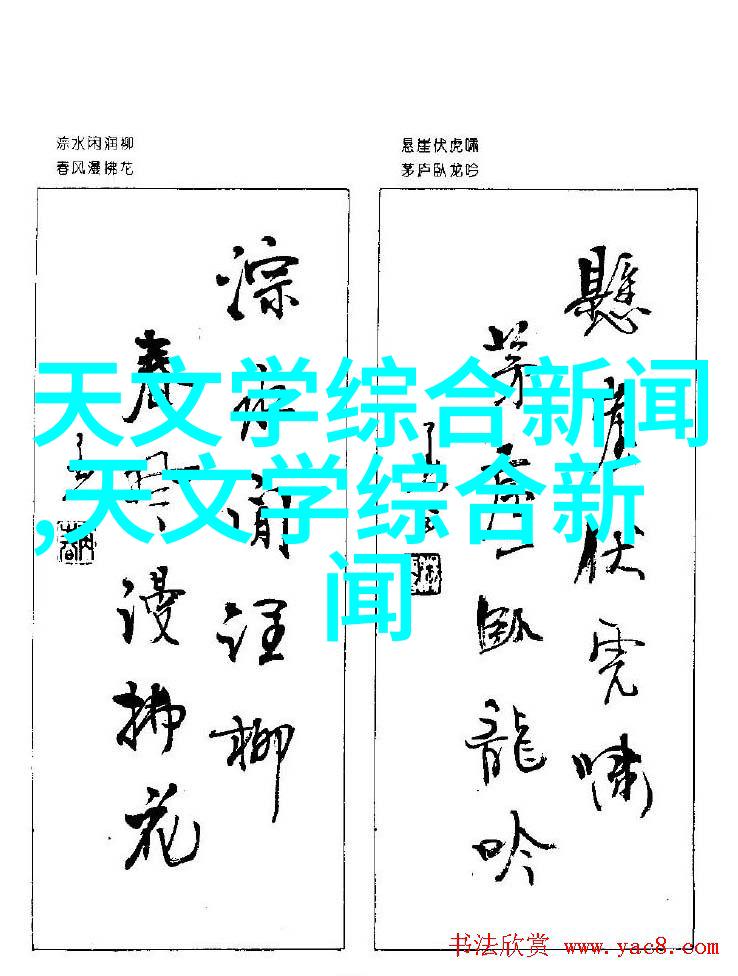 淙水闲润柳
春风漫拂花
悬崖伏虎啸
茅庐卧龙吟
淙水闲润柳
春风漫拂花
懸崖伏虎啸
茅庐卧龍吟
天文学综合新闻
,天文学综合新
闻
书法欣赏 www.yac8.com